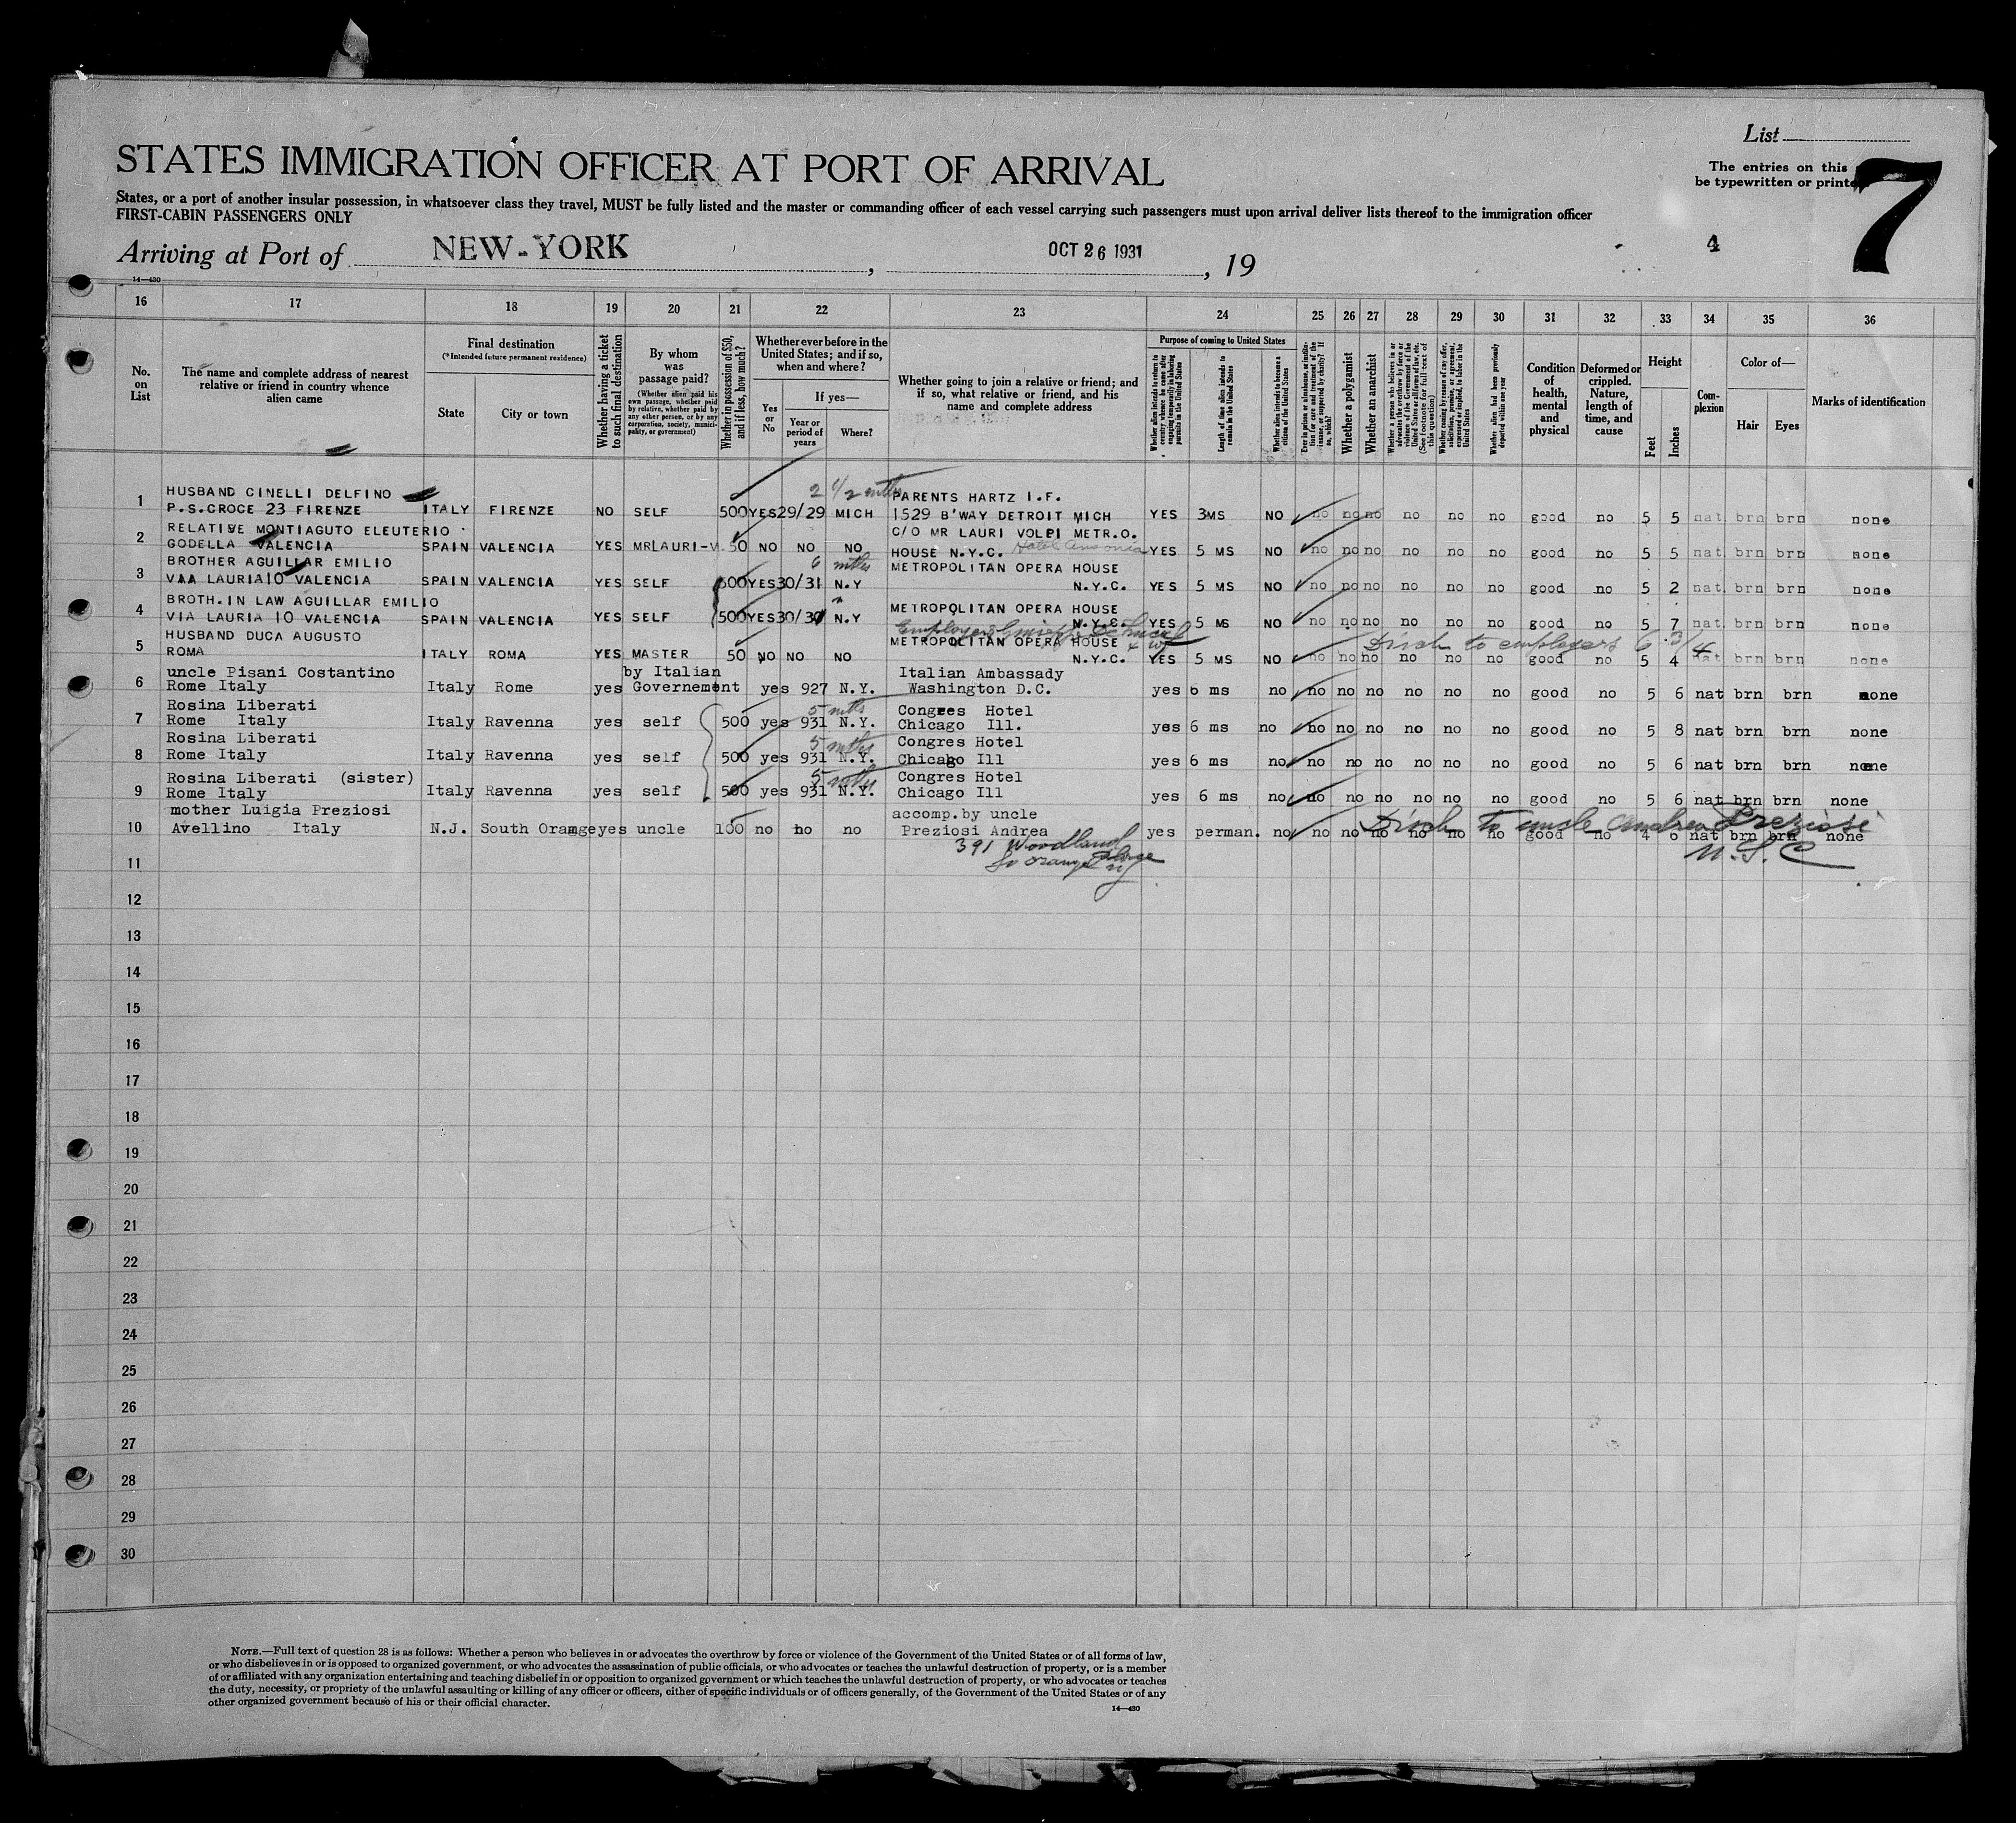 List
The entries on this
be typewritten or printe
7
STATES IMMIGRATION OFFICER AT PORT OF ARRIVAL
States, or a port of another insular possession, in whatsoever class they travel, MUST be fully listed and the master or commanding officer of each vessel carrying such passengers must upon arrival deliver lists thereof to the immigration officer
FIRST-CABIN PASSENGERS ONLY
Arriving at Port of NEW-YORK, OCT 26 1931, 19
4
14—430
16 17 18 19 20 21 22 23 24 25 26 27 28 29 30 31 32 33 34 35 36
No. on List
The name and complete address of nearest relative or friend in country whence alien came
Final destination
(*Intended future permanent residence)
State
City or town
Whether having a ticket to such final destination
By whom was passage paid?
(Whether alien paid his own passage, whether paid by relative, whether paid by any other person, or by any corporation, society, municipality, or government)
Whether in possession of $50, and if less, how much?
Whether ever before in the United States; and if so, when and where?
Yes or No
If yes—
Year or period of years
Where?
Whether going to join a relative or friend; and if so, what relative or friend, and his name and complete address
Purpose of coming to United States
Whether alien intends to return to country whence he came after engaging temporarily in laboring pursuits in the United States
Length of time alien intends to remain in the United States
Whether alien intends to become a citizen of the United States
Ever in prison or almshouse, or institution for care and treatment of the insane, or supported by charity? If so, which?
Whether a polygamist
Whether an anarchist
Whether a person who believes in or advocates the overthrow by force or violence of the Government of the United States or all forms of law, etc. (See footnote for full text of this question)
Whether coming by reason of any offer, solicitation, promise, or agreement, expressed or implied, to labor in the United States
Whether alien had been previously deported within one year
Condition of health, mental and physical
Deformed or crippled. Nature, length of time, and cause
Height
Feet
Inches
Complexion
Color of—
Hair
Eyes
Marks of identification
2 1/2 mths
HUSBAND CINELLI DELFINO PARENTS HARTZ I.F.
1 P.S.CROCE 23 FIRENZE ITALY FIRENZE NO SELF 500 YES 29/29 MICH 1529 B'WAY DETROIT MICH YES 3MS NO no no no no no no good no 5 5 nat brn brn none
RELATIVE MONTIAGUTO ELEUTERIO C/O MR LAURI VOLPI METR.O.
2 GODELLA VALENCIA SPAIN VALENCIA YES MRLAURI-V. 50 NO NO NO HOUSE N.Y.C. Hotel Ansonia YES 5 MS NO no no no no no no good no 5 5 nat brn brn none
BROTHER AGUILLAR EMILIO 6 mths METROPOLITAN OPERA HOUSE
3 VIA LAURIA10 VALENCIA SPAIN VALENCIA YES SELF 500 YES 30/31 N.Y N.Y.C. YES 5 MS NO no no no no no no good no 5 2 nat brn brn none
BROTH.IN LAW AGUILLAR EMILIO METROPOLITAN OPERA HOUSE
4 VIA LAURIA 10 VALENCIA SPAIN VALENCIA YES SELF 500 YES 30/31 N.Y N.Y.C. YES 5 MS NO no no no no no no good no 5 7 nat brn brn none
HUSBAND DUCA AUGUSTO METROPOLITAN OPERA HOUSE
5 ROMA ITALY ROMA YES MASTER 50 NO NO NO N.Y.C. YES 5 MS NO no no no no no no good no 5 4 nat brn brn none
Disch to employers 6 3/4
uncle Pisani Costantino by Italian Italian Ambassady
6 Rome Italy Italy Rome yes Governement yes 927 N.Y. Washington D.C. yes 6 ms no no no no no no no good no 5 6 nat brn brn none
Rosina Liberati 5 mths Congres Hotel
7 Rome Italy Italy Ravenna yes self 500 yes 931 N.Y. Chicago Ill. yes 6 ms no no no no no no no good no 5 8 nat brn brn none
Rosina Liberati 5 mths Congres Hotel
8 Rome Italy Italy Ravenna yes self 500 yes 931 N.Y. Chicago Ill yes 6 ms no no no no no no no good no 5 6 nat brn brn none
Rosina Liberati (sister) 5 mths Congres Hotel
9 Rome Italy Italy Ravenna yes self 500 yes 931 N.Y. Chicago Ill yes 6 ms no no no no no no no good no 5 6 nat brn brn none
mother Luigia Preziosi accomp.by uncle
10 Avellino Italy N.J. South Oramge yes uncle 100 no no no Preziosi Andrea yes perman. no no no no no no no good no 4 6 nat brn brn none
Disch to uncle Andrea Preziosi
U.S.C
391 Woodland
So Orange NJ
11
12
13
14
15
16
17
18
19
20
21
22
23
24
25
26
27
28
29
30
NOTE.—Full text of question 28 is as follows: Whether a person who believes in or advocates the overthrow by force or violence of the Government of the United States or of all forms of law,
or who disbelieves in or is opposed to organized government, or who advocates the assassination of public officials, or who advocates or teaches the unlawful destruction of property, or is a member
of or affiliated with any organization entertaining and teaching disbelief in or opposition to organized government or which teaches the unlawful destruction of property, or who advocates or teaches
the duty, necessity, or propriety of the unlawful assaulting or killing of any officer or officers, either of specific individuals or of officers generally, of the Government of the United States or of any
other organized government because of his or their official character.
14—430